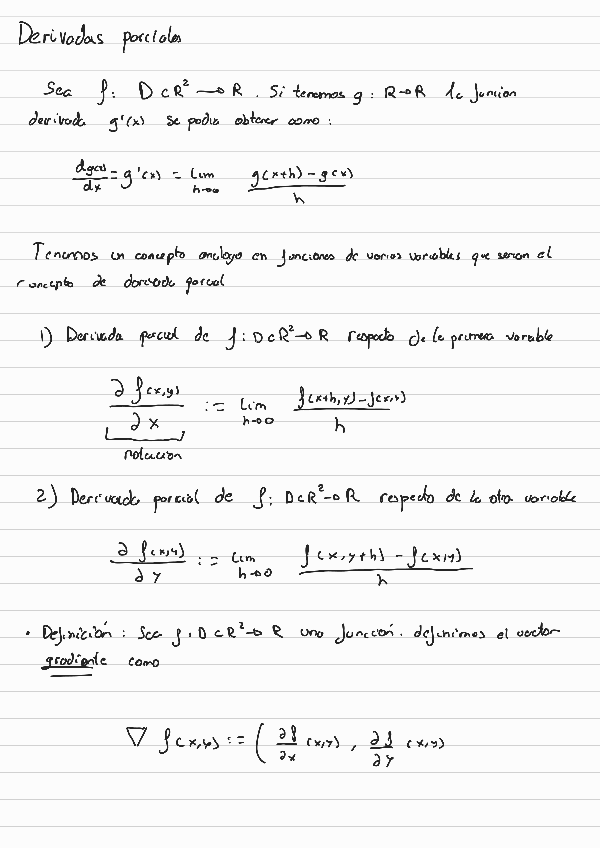 Derivadas parciales
Sea f: D⊂R² → R. Si tenemos g: R→R la funcion
derivada g'(x) se podia obtener como:
dg(x)/dx = g'(x) = lim h→0 (g(x+h) - g(x))/h
Tenemos un concepto analogo en funciones de varias variables que seran el
concepto de derivada parcial
1) Derivada parcial de f: D⊂R²→R respecto de la primera variable
∂f(x,y)/∂x := lim h→0 (f(x+h,y) - f(x,y))/h
notacion
2) Derivada parcial de f: D⊂R²→R respecto de la otra variable
∂f(x,y)/∂y := lim h→0 (f(x,y+h) - f(x,y))/h
• Definición: Sea f: D⊂R²→R una función. definimos el vector
gradiente como
∇f(x,y) := (∂f/∂x (x,y), ∂f/∂y (x,y)